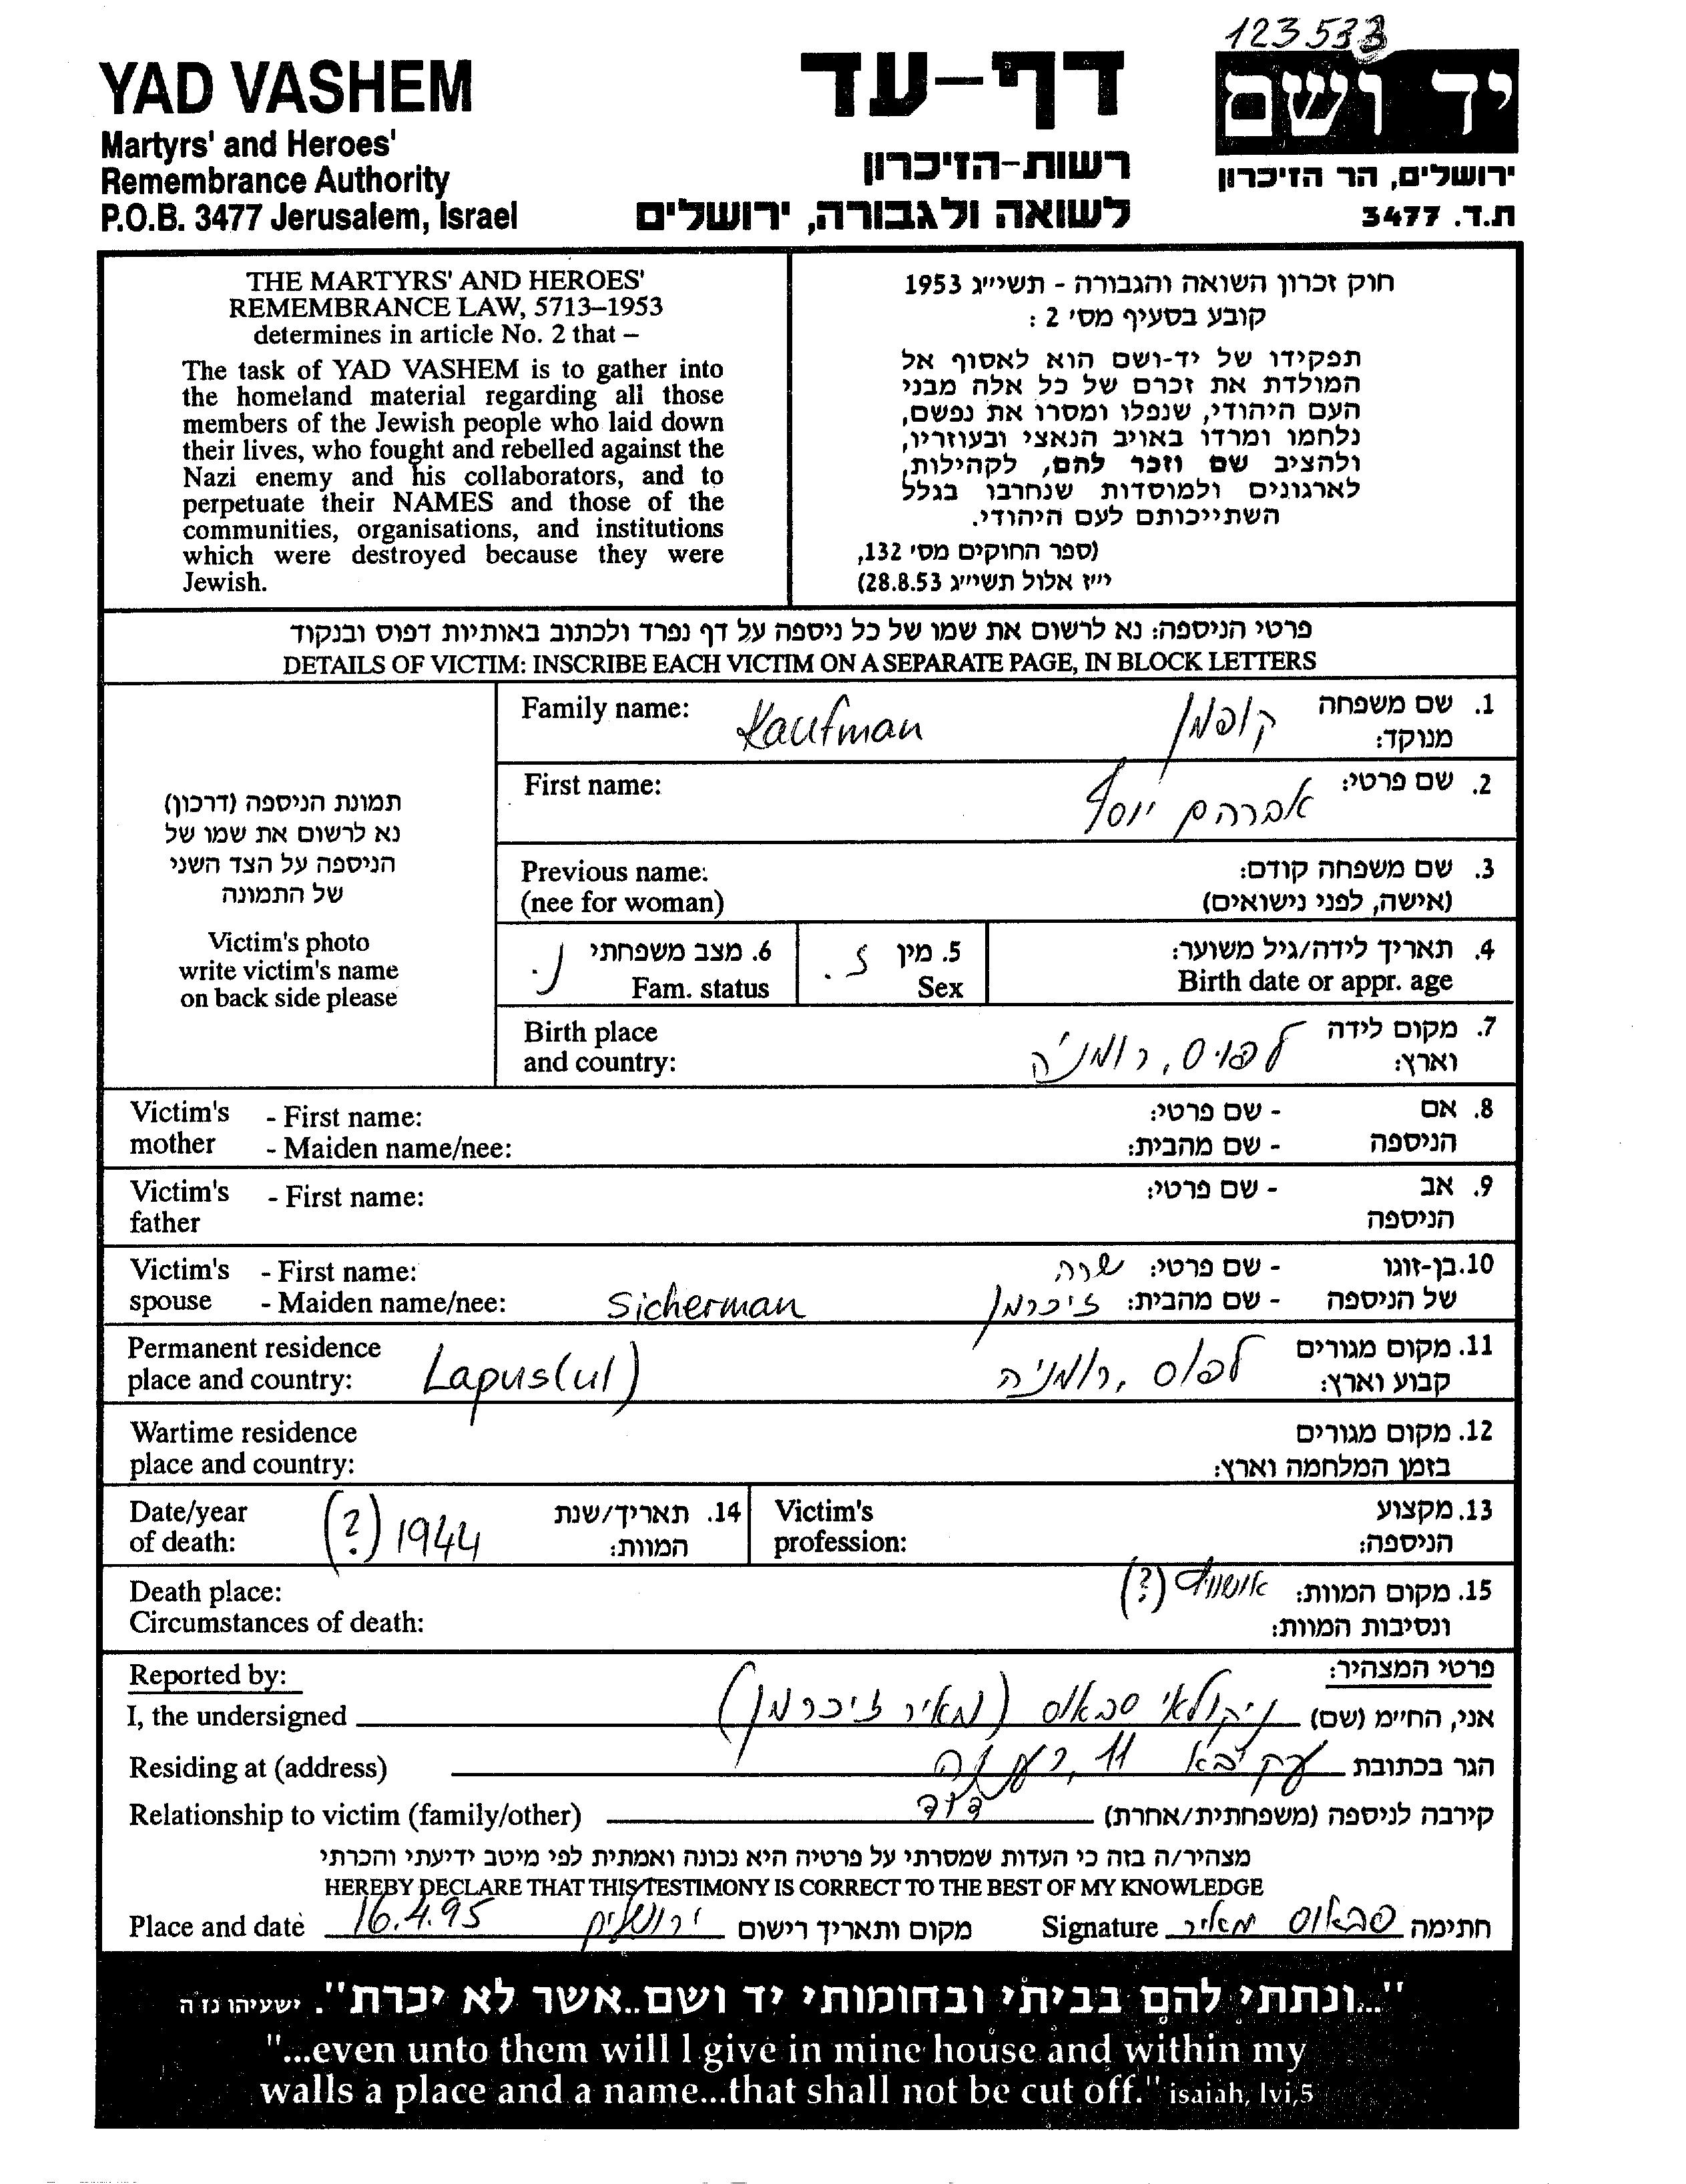 123533
YAD VASHEM
Martyrs' and Heroes'
Remembrance Authority
P.O.B. 3477 Jerusalem, Israel
דף-עד
רשות-הזיכרון
לשואה ולגבורה, ירושלים
יד ושם
ירושלים, הר הזיכרון
ת.ד. 3477
THE MARTYRS' AND HEROES'
REMEMBRANCE LAW, 5713–1953
determines in article No. 2 that –
The task of YAD VASHEM is to gather into
the homeland material regarding all those
members of the Jewish people who laid down
their lives, who fought and rebelled against the
Nazi enemy and his collaborators, and to
perpetuate their NAMES and those of the
communities, organisations, and institutions
which were destroyed because they were
Jewish.
חוק זכרון השואה והגבורה - תשי״ג 1953
קובע בסעיף מס׳ 2 :
תפקידו של יד-ושם הוא לאסוף אל
המולדת את זכרם של כל אלה מבני
העם היהודי, שנפלו ומסרו את נפשם,
נלחמו ומרדו באויב הנאצי ובעוזריו,
ולהציב שם וזכר להם, לקהילות,
לארגונים ולמוסדות שנחרבו בגלל
השתייכותם לעם היהודי.
(ספר החוקים מס׳ 132,
י״ז אלול תשי״ג 28.8.53)
פרטי הניספה: נא לרשום את שמו של כל ניספה על דף נפרד ולכתוב באותיות דפוס ובנקוד
DETAILS OF VICTIM: INSCRIBE EACH VICTIM ON A SEPARATE PAGE, IN BLOCK LETTERS
תמונת הניספה (דרכון)
נא לרשום את שמו של
הניספה על הצד השני
של התמונה
Victim's photo
write victim's name
on back side please
Family name: Kaufman קופמן 1. שם משפחה
מנוקד:
First name: אברהם יוסף 2. שם פרטי:
Previous name: 3. שם משפחה קודם:
(nee for woman) (אישה, לפני נישואים)
6. מצב משפחתי נ. 5. מין ז. 4. תאריך לידה/גיל משוער:
Fam. status Sex Birth date or appr. age
Birth place לפוס, רומניה 7. מקום לידה
and country: וארץ:
Victim's - First name: - שם פרטי: 8. אם
mother - Maiden name/nee: - שם מהבית: הניספה
Victim's - First name: - שם פרטי: 9. אב
father הניספה
Victim's - First name: שרה - שם פרטי: 10. בן-זוגו
spouse - Maiden name/nee: Sicherman זיכרמן - שם מהבית: של הניספה
Permanent residence 11. מקום מגורים
place and country: Lapus(ul) לפוס, רומניה קבוע וארץ:
Wartime residence 12. מקום מגורים
place and country: בזמן המלחמה וארץ:
Date/year (?) 1944 14. תאריך/שנת Victim's 13. מקצוע
of death: המוות: profession: הניספה:
Death place: אושוויץ (?) 15. מקום המוות:
Circumstances of death: ונסיבות המוות:
Reported by: פרטי המצהיר:
I, the undersigned ניקולאי סבאוס (מאיר זיכרמן) אני, החי״מ (שם)
Residing at (address) עקיבא 11, רעננה הגר בכתובת
Relationship to victim (family/other) דוד קירבה לניספה (משפחתית/אחרת)
מצהיר/ה בזה כי העדות שמסרתי על פרטיה היא נכונה ואמתית לפי מיטב ידיעתי והכרתי
HEREBY DECLARE THAT THIS TESTIMONY IS CORRECT TO THE BEST OF MY KNOWLEDGE
Place and date 16.4.95 ירושלים מקום ותאריך רישום Signature סבאוס מאיר חתימה
"...ונתתי להם בביתי ובחומותי יד ושם..אשר לא יכרת". ישעיהו נז ה
"...even unto them will I give in mine house and within my
walls a place and a name...that shall not be cut off." isaiah, lvi,5